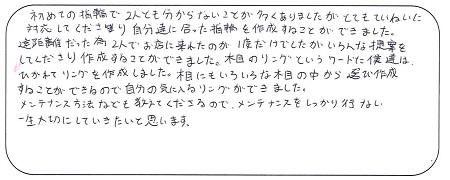 初めての指輪で2人とも分からないことが多くありましたがとてもていねいに
対応してくださり自分達に合った指輪を作成することができました。
遠距離だった為2人でお店に来れたのが1度だけでしたがいろんな提案を
してくださり作成することができました。木目のリングというワードに僕達は、
ひかれてリングを作成しました。木目にもいろいろな木目の中から選び作成
することができるので自分の気に入るリングができました。
メンテナンス方法なども教えてくださるので、メンテナンスをしっかり行ない
一生大切にしていきたいと思います。